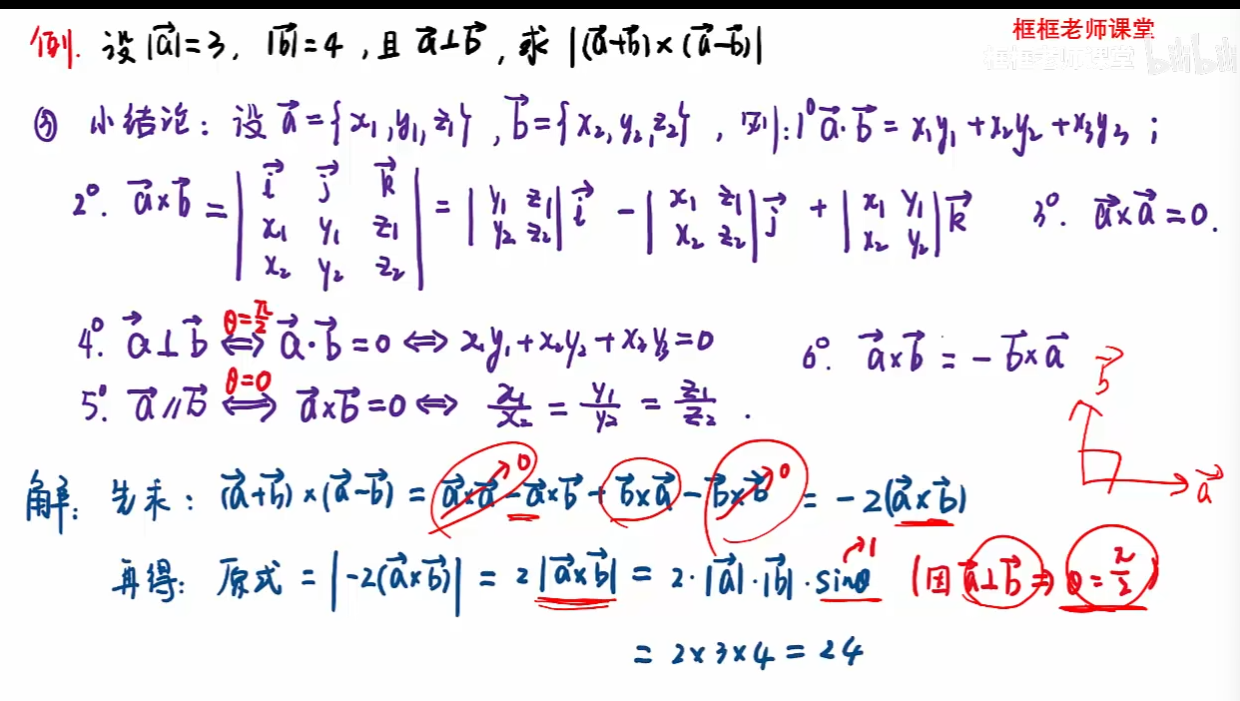 框框老师课堂
框框老师课堂 bilibili
例. 设|a⃗|=3, |b⃗|=4, 且 a⃗⊥b⃗, 求 |(a⃗+b⃗)×(a⃗-b⃗)|
③ 小结论: 设 a⃗={x₁,y₁,z₁}, b⃗={x₂,y₂,z₂}, 则: 1° a⃗·b⃗ = x₁y₁+x₂y₂+x₃y₃;
2°. a⃗×b⃗ = |i⃗ j⃗ k⃗; x₁ y₁ z₁; x₂ y₂ z₂| = |y₁ z₁; y₂ z₂|i⃗ - |x₁ z₁; x₂ z₂|j⃗ + |x₁ y₁; x₂ y₂|k⃗ 3°. a⃗×a⃗=0.
4°. a⃗⊥b⃗ ⇔(θ=π/2) a⃗·b⃗=0 ⇔ x₁y₁+x₂y₂+x₃y₃=0 6°. a⃗×b⃗ = -b⃗×a⃗
5°. a⃗∥b⃗ ⇔(θ=0) a⃗×b⃗=0 ⇔ x₁/x₂ = y₁/y₂ = z₁/z₂.
b⃗
a⃗
解: 先来: (a⃗+b⃗)×(a⃗-b⃗) = a⃗×a⃗ → 0 - a⃗×b⃗ + b⃗×a⃗ - b⃗×b⃗ → 0 = -2(a⃗×b⃗)
再得: 原式 = |-2(a⃗×b⃗)| = 2|a⃗×b⃗| = 2·|a⃗|·|b⃗|·sinθ → 1 (因 a⃗⊥b⃗ ⇒ θ=π/2)
= 2×3×4 = 24